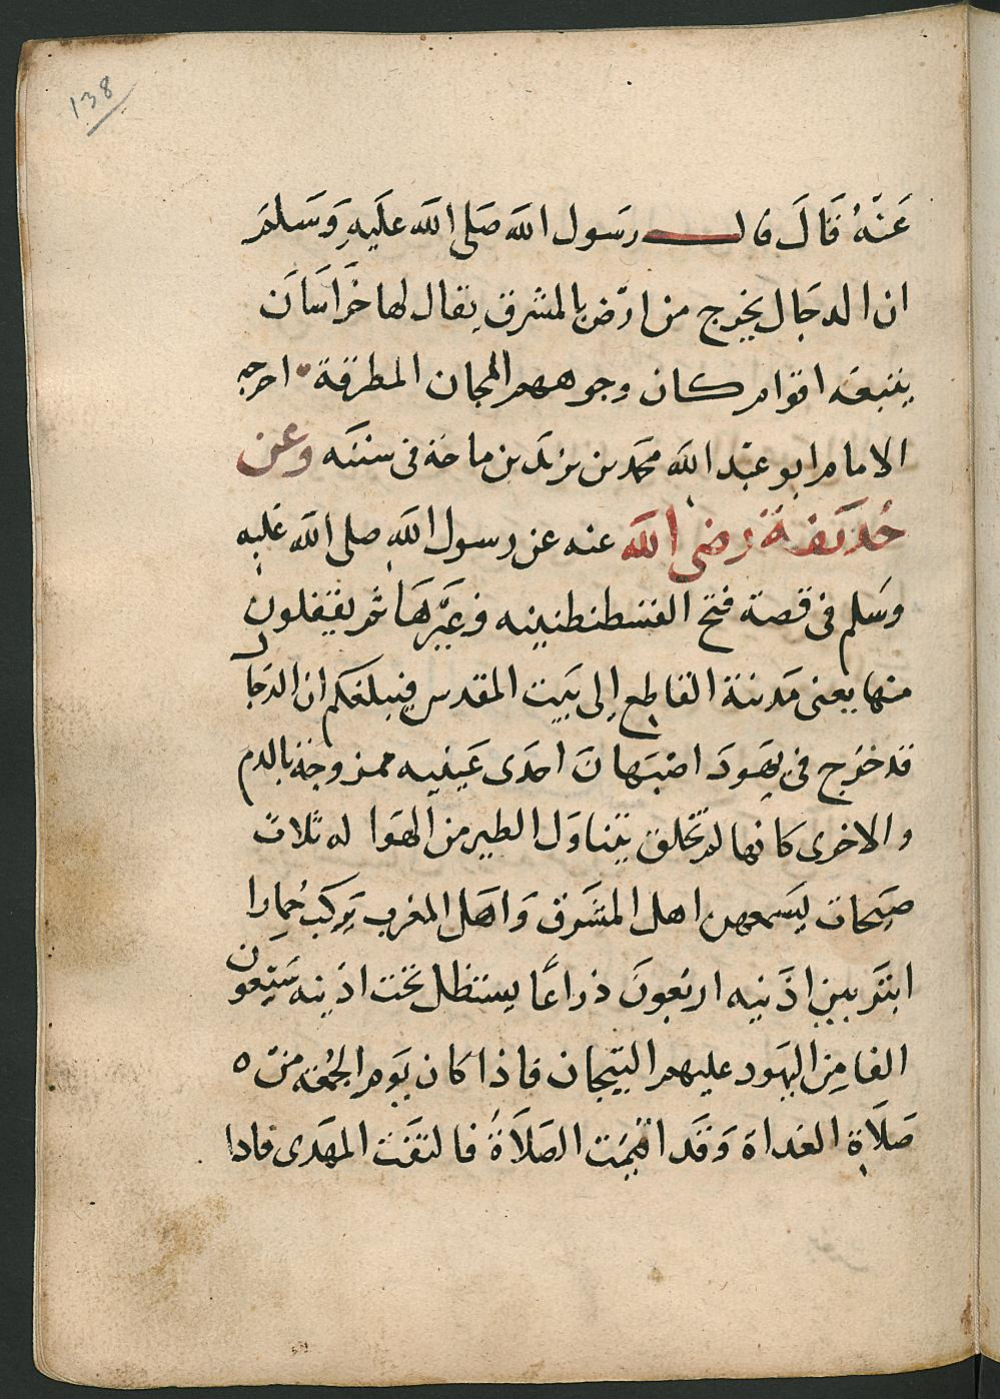 138
عَنْهُ قَالَ قال رسَول الله صَلى الله عليَهِ وَسَلم
ان الدجَال يخرج من ارض بالمشرق يقال لها خَرَاسَان
يتبعه اقوام كان وجوههم المجان المطرقة اخرجه
الامام ابو عبد الله محمد بن يزيد بن ماجة فى سننه وعن
حُذيفة رضى الله عنه عن رسول الله صلى الله عليه
وسَلم فى قصة فتح القسطنطنينه وغيَّرهَا ثم يقفلون
منها يعنى مَدينة القاطع اِلى بَيت المقدس فيبلغكم ان الدجال
قد خرج فى يهَودَ اصبَهَانَ احَدى عَينيه ممزوجة بالدم
والاخرى كانها لم تخلق يتناوَل الطير من الهوَا له ثلاث
صَيحات يَسمعهن اهل المشَرق وَاهَل المغرب يَركب حُمِارا
ابتَر بين اذَنيه اربَعونَ ذراعًا يستظل تحت اذنيه سَبعون
الفا مِن اليهَود عليهم التيجان فاذا كان يَوم الجُمعَه من ه
صَلَاةِ الغداة وَقَد اقيمَت الصَلَاةُ فالتفَت المهَدى فاذا